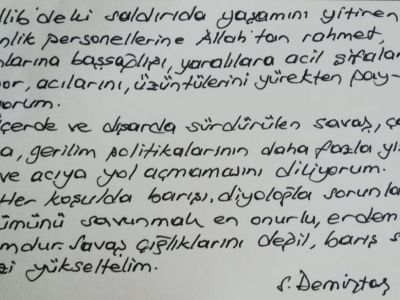 llib'deki saldırıda yaşamını yitiren
nlik personellerine Allah'tan rahmet,
nlarına başsağlığı, yaralılara acil şifalar
or, acılarını, üzüntülerini yürekten pay-
yorum.
çerde ve dışarda sürdürülen savaş, ça
a, gerilim politikalarının daha fazla yı
ve acıya yol açmamasını diliyorum.
Her koşulda barışı, diyoloğla sorunla
ümünü savunmak en onurlu, erdem
mdur. Savaş çığlıklarını değil, barış s
zi yükseltelim.
S. Demirtaş